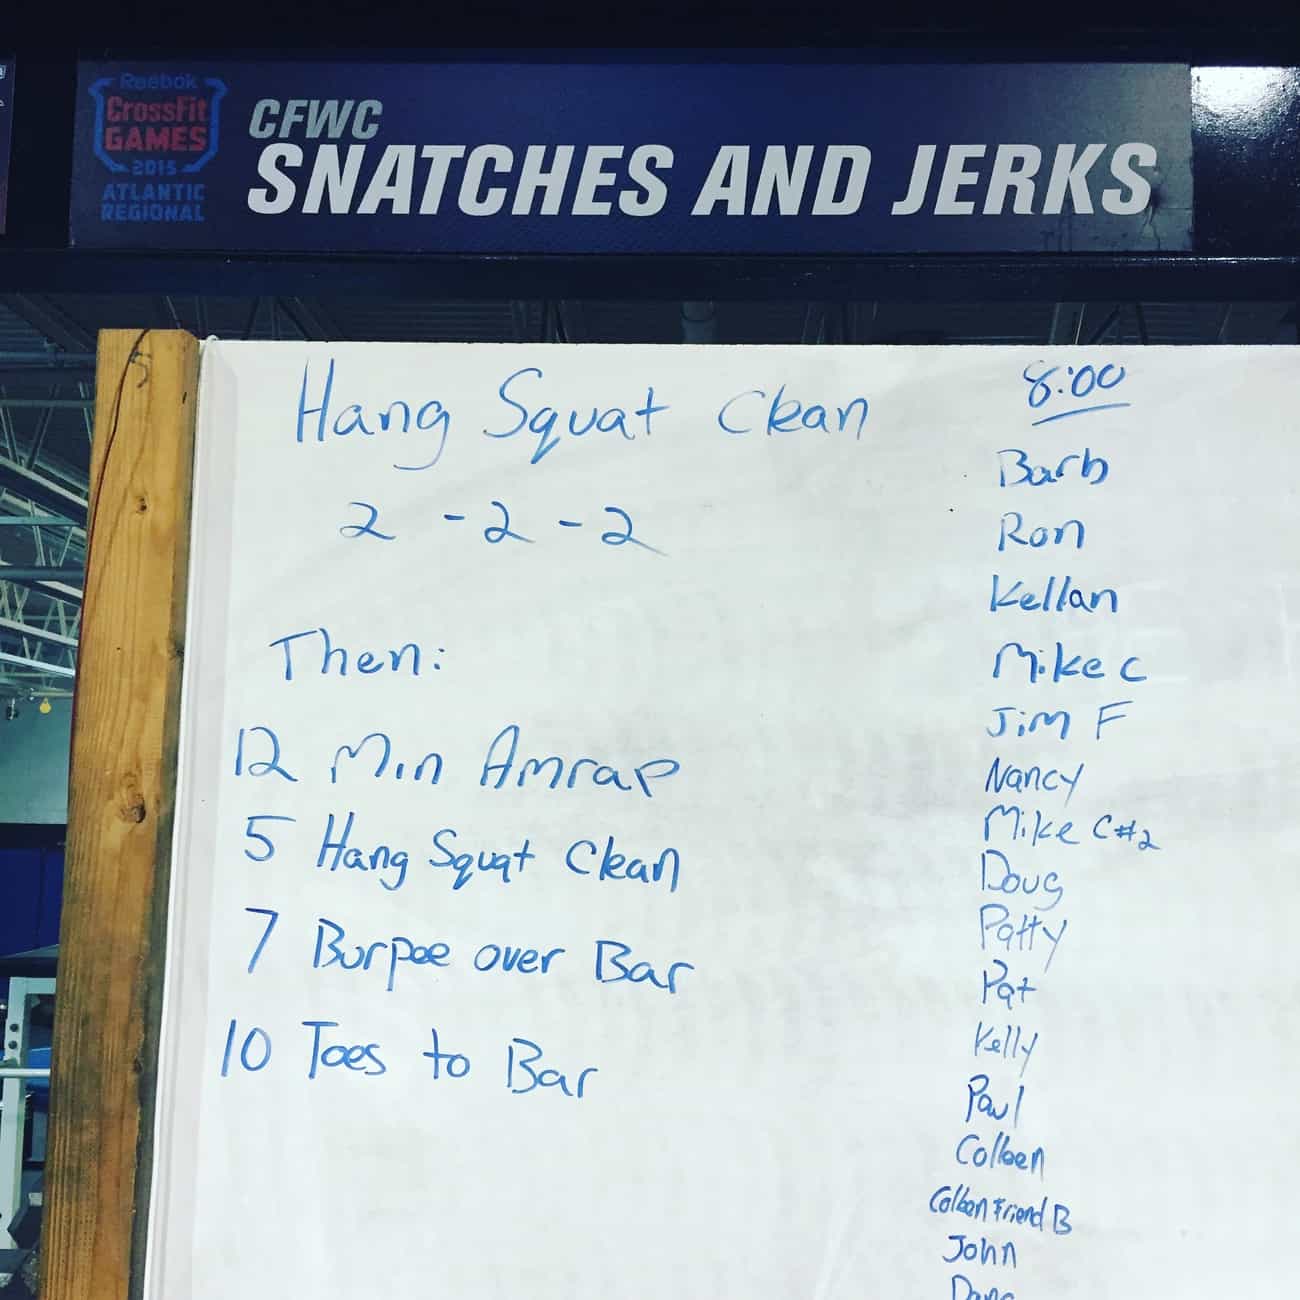 Reebok
CrossFit
GAMES
2015
ATLANTIC
REGIONAL
CFWC
SNATCHES AND JERKS
Hang Squat Clean
2 - 2 - 2
Then:
12 Min Amrap
5 Hang Squat Clean
7 Burpee over Bar
10 Toes to Bar
8:00
Barb
Ron
Kellan
Mike C
Jim F
Nancy
Mike C #2
Doug
Patty
Pat
Kelly
Paul
Colleen
Colleen Friend B
John